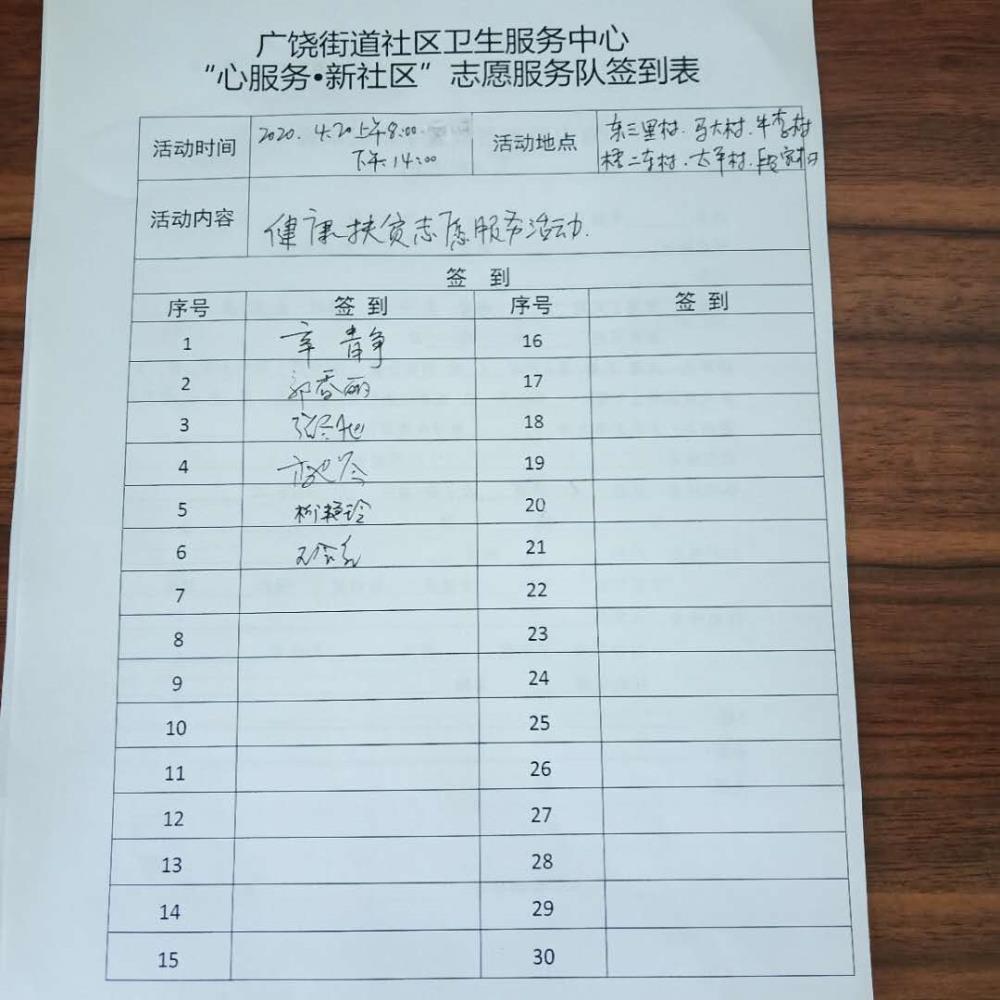 广饶街道社区卫生服务中心
“心服务·新社区”志愿服务队签到表
活动时间 2020.4.20上午8:00 活动地点 东三里村.马大村.牛李村
下午14:00 二村.大平村.段家村
活动内容 健康扶贫志愿服务活动.
签 到
序号 签 到 序号 签 到
1 辛青争 16
2 郭香丽 17
3 18
4 19
5 柳艳玲 20
6 21
7 22
8 23
9 24
10 25
11 26
12 27
13 28
14 29
15 30